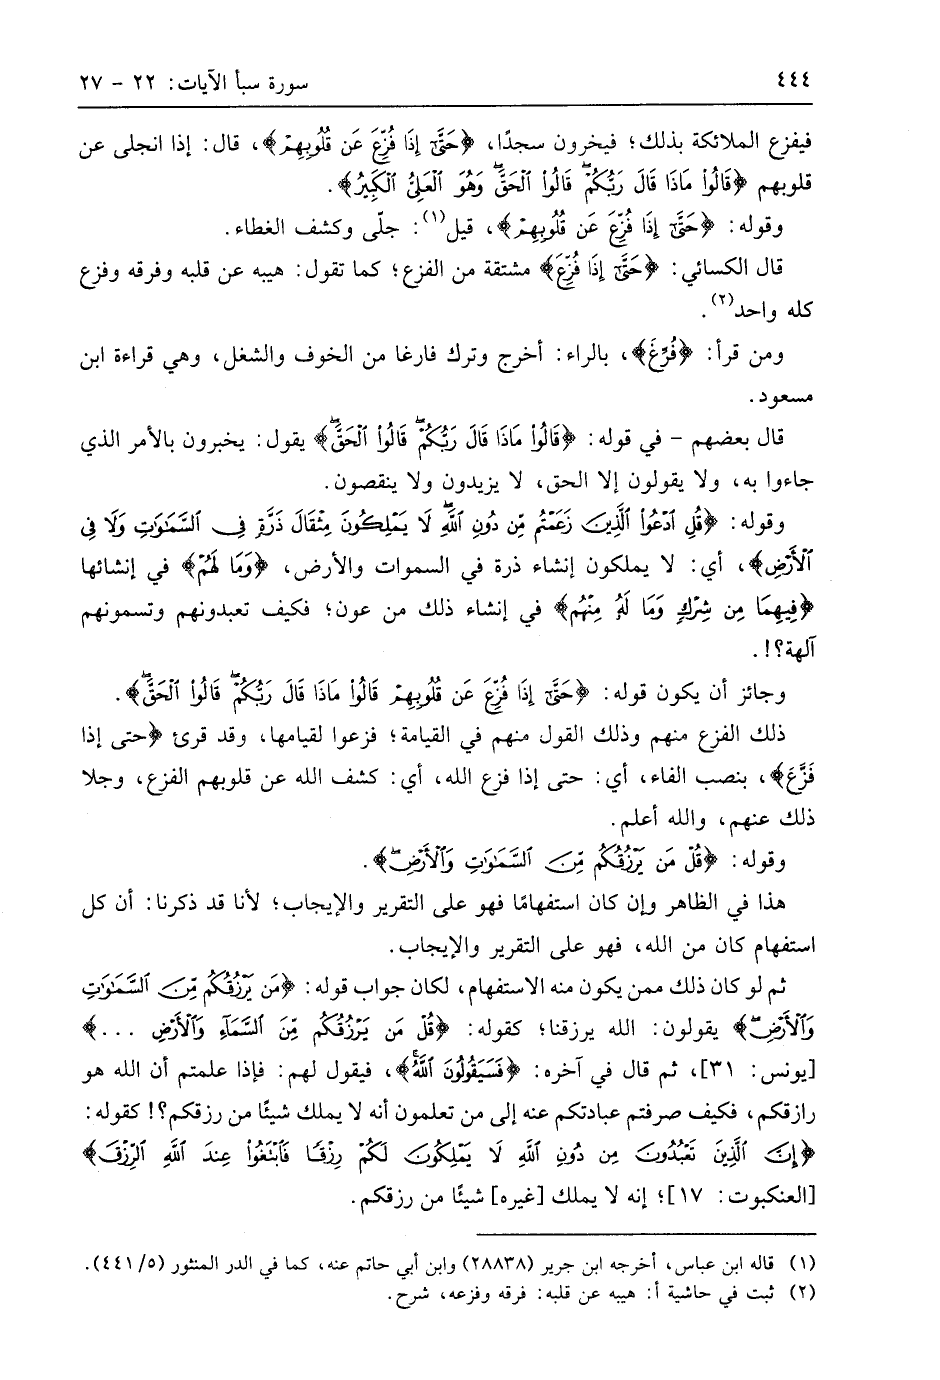 ٤٤٤ سورة سبأ الآيات: ٢٢ - ٢٧
فيفزع الملائكة بذلك؛ فيخرون سجدًا، ﴿حَتَّىٰٓ إِذَا فُزِّعَ عَن قُلُوبِهِمْ﴾، قال: إذا انجلى عن
قلوبهم ﴿قَالُوا۟ مَاذَا قَالَ رَبُّكُمْ ۖ قَالُوا۟ ٱلْحَقَّ ۖ وَهُوَ ٱلْعَلِىُّ ٱلْكَبِيرُ﴾.
وقوله: ﴿حَتَّىٰٓ إِذَا فُزِّعَ عَن قُلُوبِهِمْ﴾، قيل(١): جلّى وكشف الغطاء.
قال الكسائي: ﴿حَتَّىٰٓ إِذَا فُزِّعَ﴾ مشتقة من الفزع؛ كما تقول: هيبه عن قلبه وفرقه وفزع
كله واحد(٢).
ومن قرأ: ﴿فُرِّغَ﴾، بالراء: أخرج وترك فارغا من الخوف والشغل، وهي قراءة ابن
مسعود.
قال بعضهم - في قوله: ﴿قَالُوا۟ مَاذَا قَالَ رَبُّكُمْ ۖ قَالُوا۟ ٱلْحَقَّ ۖ﴾ يقول: يخبرون بالأمر الذي
جاءوا به، ولا يقولون إلا الحق، لا يزيدون ولا ينقصون.
وقوله: ﴿قُلِ ٱدْعُوا۟ ٱلَّذِينَ زَعَمْتُم مِّن دُونِ ٱللَّهِ ۖ لَا يَمْلِكُونَ مِثْقَالَ ذَرَّةٍ فِى ٱلسَّمَٰوَٰتِ وَلَا فِى
ٱلْأَرْضِ﴾، أي: لا يملكون إنشاء ذرة في السموات والأرض، ﴿وَمَا لَهُمْ﴾ في إنشائها
﴿فِيهِمَا مِن شِرْكٍ وَمَا لَهُۥ مِنْهُم﴾ في إنشاء ذلك من عون؛ فكيف تعبدونهم وتسمونهم
آلهة؟!.
وجائز أن يكون قوله: ﴿حَتَّىٰٓ إِذَا فُزِّعَ عَن قُلُوبِهِمْ قَالُوا۟ مَاذَا قَالَ رَبُّكُمْ ۖ قَالُوا۟ ٱلْحَقَّ ۖ﴾.
ذلك الفزع منهم وذلك القول منهم في القيامة؛ فزعوا لقيامها، وقد قرئ ﴿حتى إذا
فَزَّعَ﴾، بنصب الفاء، أي: حتى إذا فزع الله، أي: كشف الله عن قلوبهم الفزع، وجلا
ذلك عنهم، والله أعلم.
وقوله: ﴿قُلْ مَن يَرْزُقُكُم مِّنَ ٱلسَّمَٰوَٰتِ وَٱلْأَرْضِ ۖ﴾.
هذا في الظاهر وإن كان استفهامًا فهو على التقرير والإيجاب؛ لأنا قد ذكرنا: أن كل
استفهام كان من الله، فهو على التقرير والإيجاب.
ثم لو كان ذلك ممن يكون منه الاستفهام، لكان جواب قوله: ﴿مَن يَرْزُقُكُم مِّنَ ٱلسَّمَٰوَٰتِ
وَٱلْأَرْضِ ۖ﴾ يقولون: الله يرزقنا؛ كقوله: ﴿قُلْ مَن يَرْزُقُكُم مِّنَ ٱلسَّمَآءِ وَٱلْأَرْضِ ...﴾
[يونس: ٣١]، ثم قال في آخره: ﴿فَسَيَقُولُونَ ٱللَّهُ ۚ﴾، فيقول لهم: فإذا علمتم أن الله هو
رازقكم، فكيف صرفتم عبادتكم عنه إلى من تعلمون أنه لا يملك شيئًا من رزقكم؟! كقوله:
﴿إِنَّ ٱلَّذِينَ تَعْبُدُونَ مِن دُونِ ٱللَّهِ لَا يَمْلِكُونَ لَكُمْ رِزْقًا فَٱبْتَغُوا۟ عِندَ ٱللَّهِ ٱلرِّزْقَ﴾
[العنكبوت: ١٧]؛ إنه لا يملك [غيره] شيئًا من رزقكم.
(١) قاله ابن عباس، أخرجه ابن جرير (٢٨٨٣٨) وابن أبي حاتم عنه، كما في الدر المنثور (٥/ ٤٤١).
(٢) ثبت في حاشية أ: هيبه عن قلبه: فرقه وفزعه، شرح.